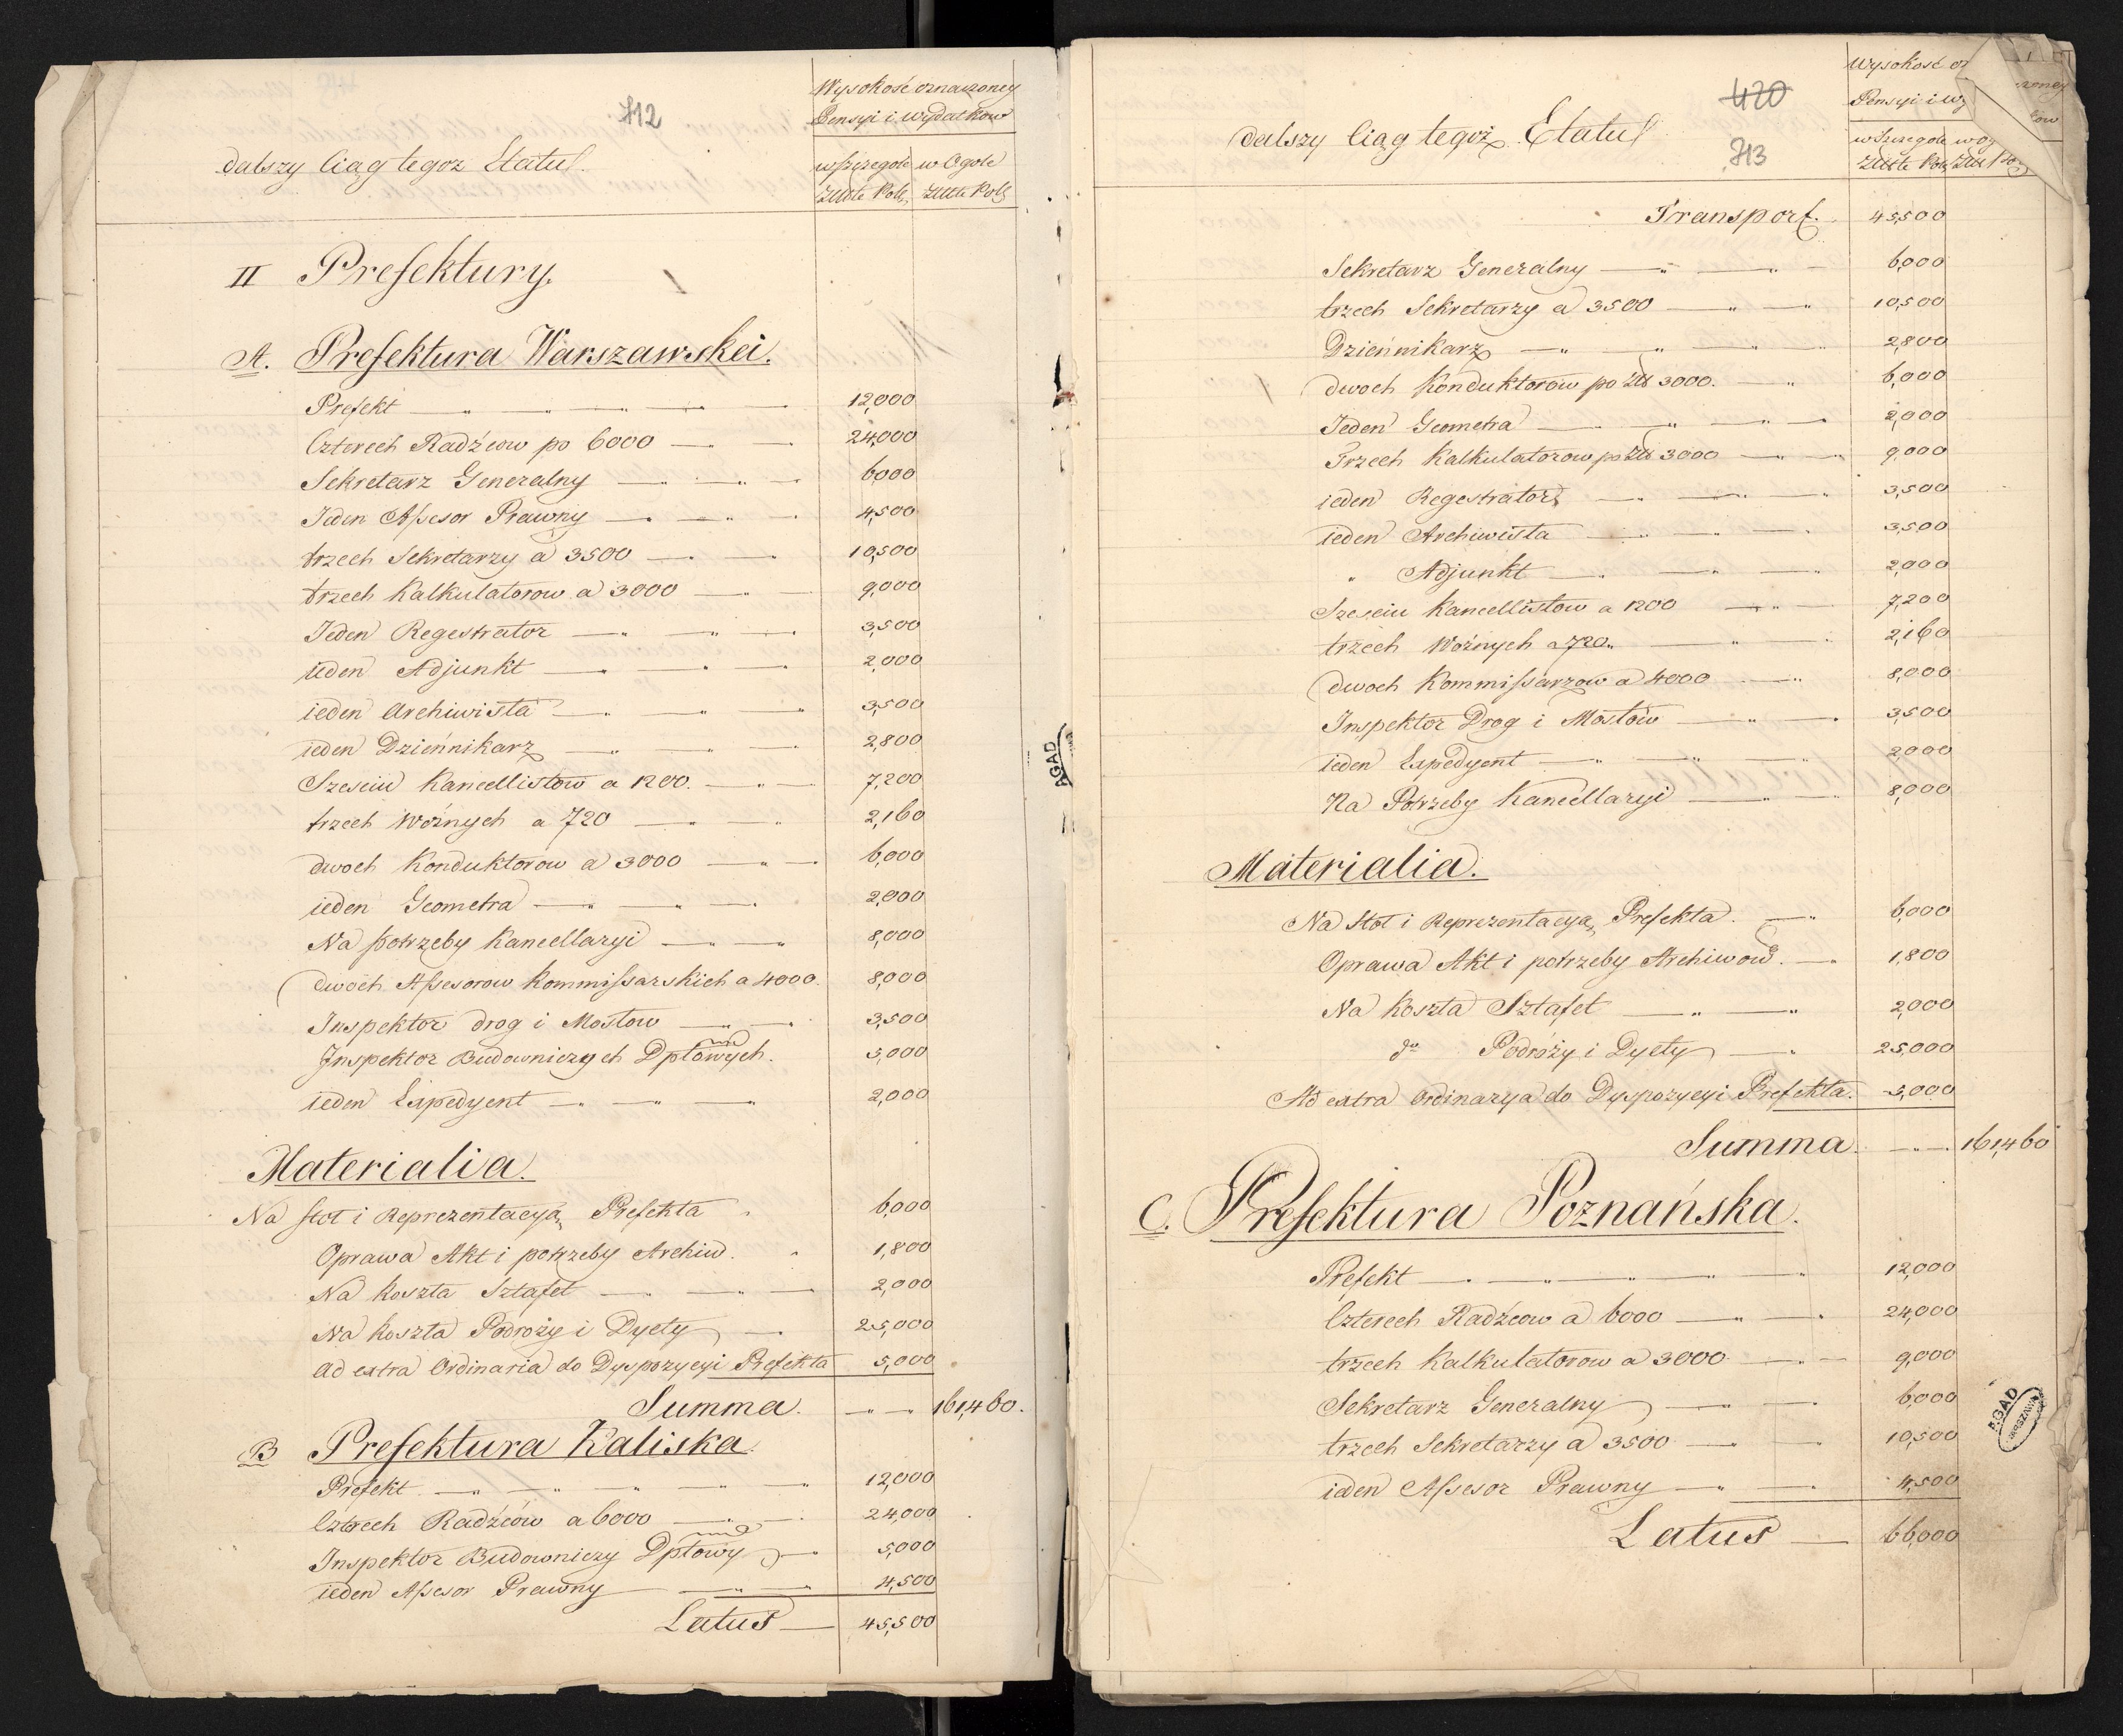 712
Wysokość oznaczoney
Pensyi i wydatkow
dalszy Ciąg tegoz Etatu
w szczegole w Ogole
Złłte Pols Złłte Pols
II Prefektury.
A. Prefektura Warszawskei.
Prefekt 12,000
Czterech Radźcow po 6000 24,000
Sekretarz Generalny 6,000
Jeden Assesor Prawny 4,500
trzech Sekretarzy a 3500 10,500
trzech Kalkulatorow a 3000 9,000
Jeden Regestrator 3,500
ieden Adjunkt 2,000
ieden Archiwista 3,500
ieden Dzieńnikarz 2,800
Szesciu Kancellistow a 1200. 7,200
trzech Woźnych a 720 2,160
dwoch Konduktorow a 3000 6,000
ieden Geometra 2,000
Na potrzeby Kancellaryi 8,000
dwoch Assesorow Kommissarskich a 4000. 8,000
Inspektor drog i Mostow 3,500
Inspektor Budowniczych Dptowych. 5,000
ieden Expedyent 2,000
Materialia.
Na stoł i Reprezentacyą Prefekta 6,000
Oprawa Akt i potrzeby Archiw. 1,800
Na koszta Sztafet 2,000
Na koszta Podroży i Dyety 25,000
ad extra Ordinaria do Dyspozycyi Prefekta 5,000
Summa. 161,460.
B Prefektura Kaliska
Prefekt 12,000
Czterech Radźców a 6000 24,000
Inspektor Budowniczy Dptowy 5,000
ieden Assesor Prawny 4,500
Latus 45,500
AGAD
420
713
Wysokość oz
Pensyi i wy
dalszy Ciąg tegoż Etatu
w szczegole w og
Złłte Pols
Transport. 45,500
Sekretarz Generalny 6,000
trzech Sekretarzy a 3500 10,500
Dzieńnikarz 2,800
dwoch Konduktorow po Złł 3000. 6,000
Jeden Geometra 2,000
Trzech Kalkulatorow po Złł 3000 9,000
ieden Regestrator 3,500
ieden Archiwista 3,500
" Adjunkt 2,000
Szesciu Kancellistow a 1200 7,200
trzech Woźnych a 720 2,160
dwoch Kommissarzow a 4000 8,000
Inspektor Drog i Mostów 3,500
ieden Expedyent 2000
Na Potrzeby Kancellaryi 8,000
Materialia.
Na Stoł i Reprezentacyą Prefekta. 6,000
Oprawa Akt i potrzeby Archiwow. 1,800
Na koszta Sztafet 2,000
do Podróży i Dyety 25,000
Ad extra Ordinarya do Dyspozycyi Prefekta. 5,000
Summa. 161,460
C. Prefektura Poznańska.
Prefekt 12,000
Czterech Radźcow a 6000 24,000
trzech Kalkulatorow a 3000 9,000
Sekretarz Generalny 6,000
trzech Sekretarzy a 3500 10,500
ieden Assesor Prawny 4,500
Latus 66,000
AGAD